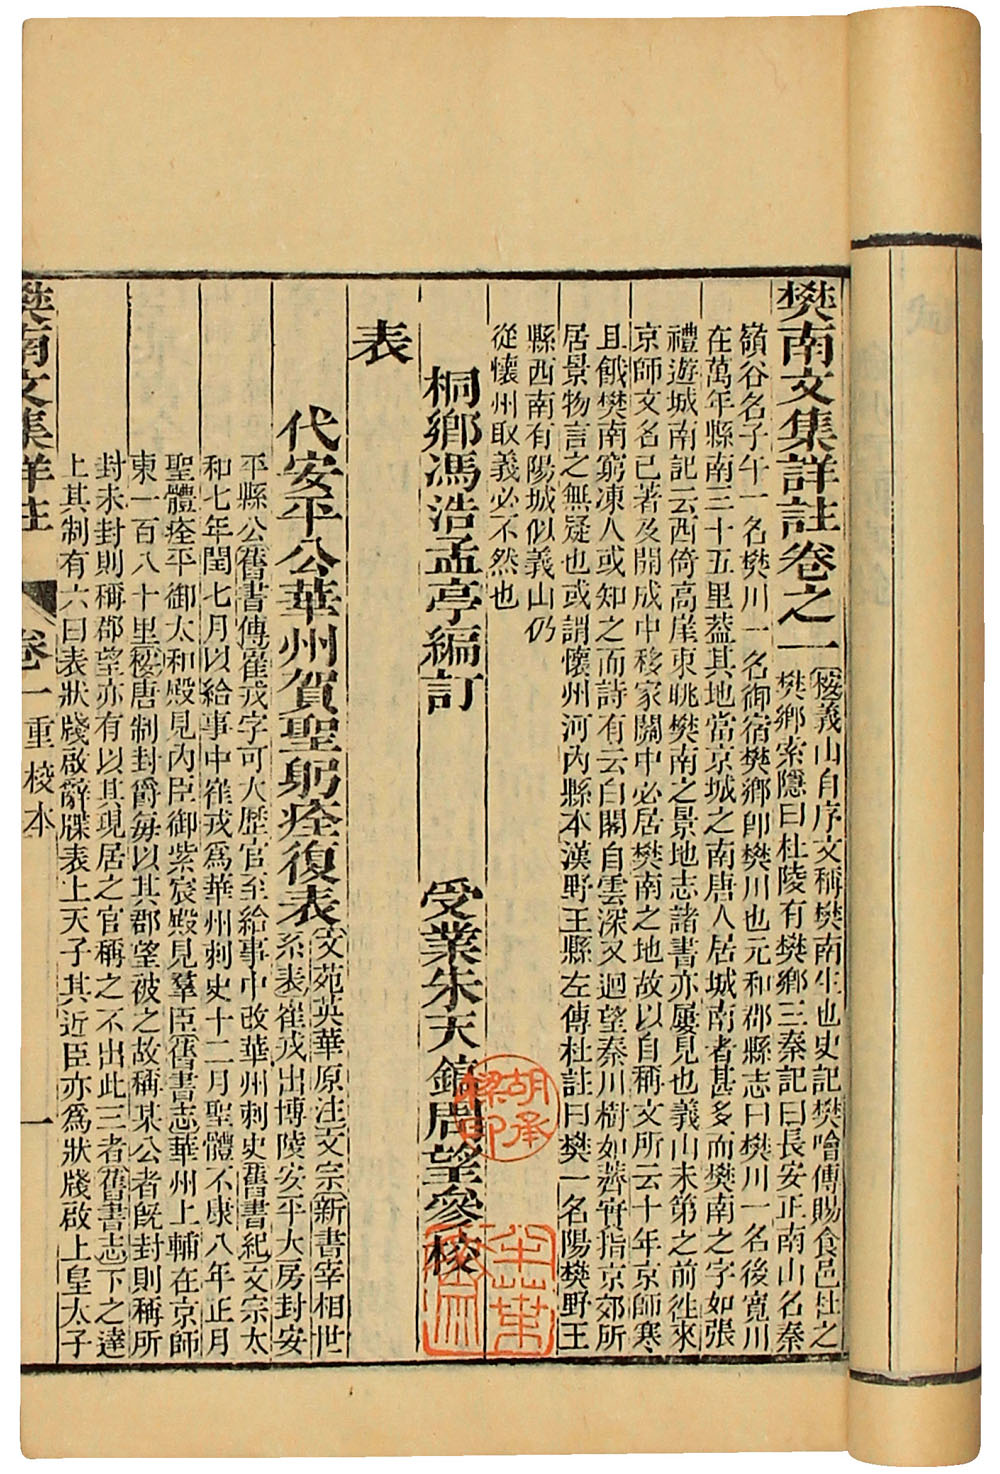 樊南文集詳註卷之一
按義山自序文稱樊南生也史記樊噲傳賜食邑杜之
樊鄉索隱曰杜陵有樊鄉三秦記曰長安正南山名秦
嶺谷名子午一名樊川一名御宿樊鄉卽樊川也元和郡縣志曰樊川一名後寬川
在萬年縣南三十五里葢其地當京城之南唐人居城南者甚多而樊南之字如張
禮遊城南記云西倚高崖東眺樊南之景地志諸書亦屢見也義山未第之前徃來
京師文名已著及開成中移家關中必居樊南之地故以自稱文所云十年京師寒
且餓樊南窮凍人或知之而詩有云白閣自雲深又迴望秦川樹如薺實指京郊所
居景物言之無疑也或謂懷州河內縣本漢野王縣左傳杜註曰樊一名陽樊野王
縣西南有陽城似義山仍
從懷州取義必不然也
桐鄉馮浩孟亭編訂 受業朱天鎬周望參校
胡承樑印
表
代安平公華州賀聖躬痊復表
文苑英華原注文宗新書宰相世
系表崔戎出博陵安平大房封安
平縣公舊書傳崔戎字可大歷官至給事中改華州刺史舊書紀文宗太
和七年閏七月以給事中崔戎爲華州刺史十二月聖體不康八年正月
聖體痊平御太和殿見內臣御紫宸殿見羣臣舊書志華州上輔在京師
東一百八十里按唐制封爵每以其郡望被之故稱某公者旣封則稱所
封未封則稱郡望亦有以其現居之官稱之不出此三者舊書志下之達
上其制有六曰表狀牋啟辭牒表上天子其近臣亦爲狀牋啟上皇太子
樊南文集詳註 卷一 重校本 一